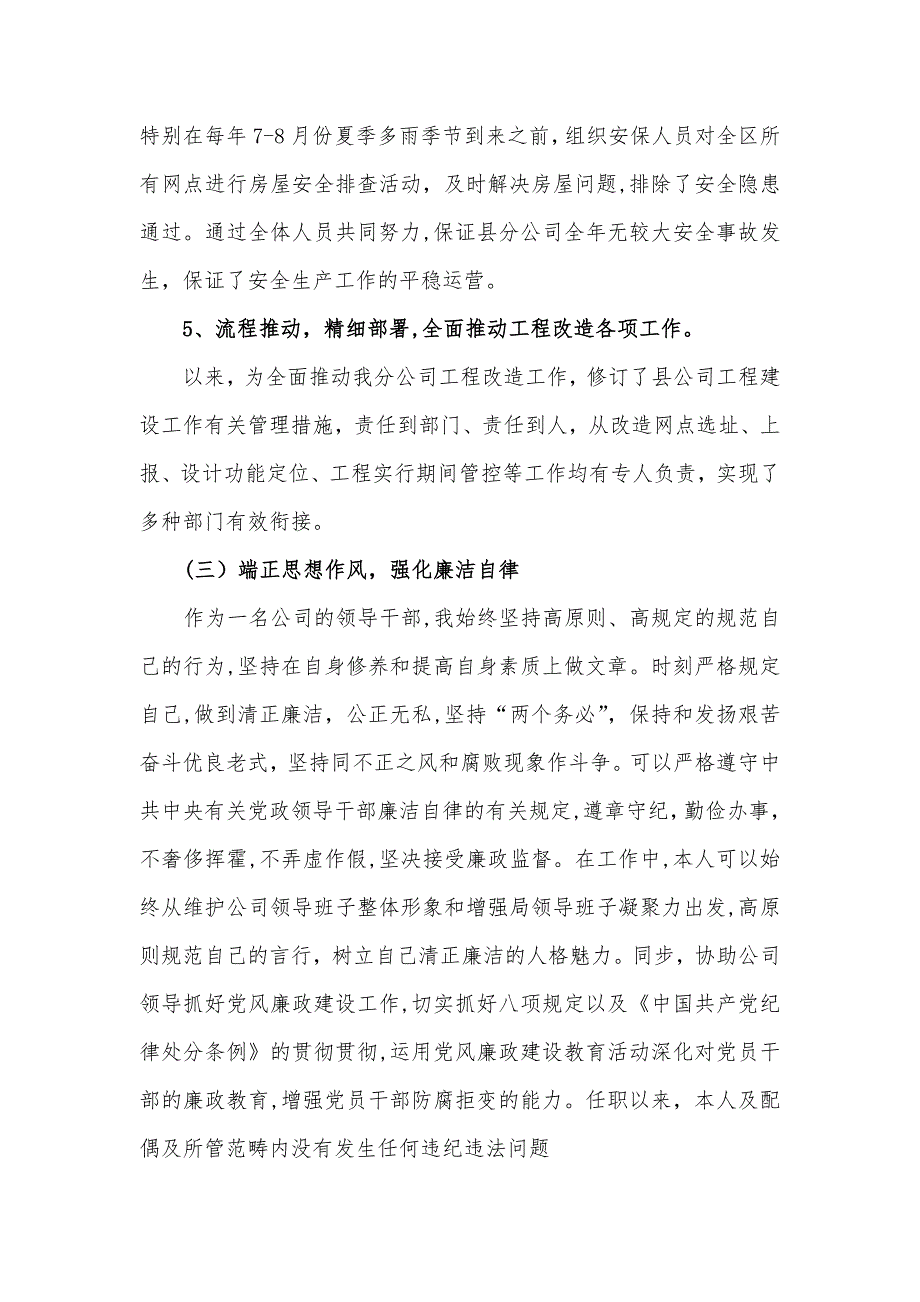 特别在每年 7-8 月份夏季多雨季节到来之前,组织安保人员对全区所
有网点进行房屋安全排查活动，及时解决房屋问题,排除了安全隐患
通过。通过全体人员共同努力,保证县分公司全年无较大安全事故发
生，保证了安全生产工作的平稳运营。
5、流程推动，精细部署,全面推动工程改造各项工作。
以来，为全面推动我分公司工程改造工作，修订了县公司工程建
设工作有关管理措施，责任到部门、责任到人，从改造网点选址、上
报、设计功能定位、工程实行期间管控等工作均有专人负责，实现了
多种部门有效衔接。
(三）端正思想作风，强化廉洁自律
作为一名公司的领导干部,我始终坚持高原则、高规定的规范自
己的行为,坚持在自身修养和提高自身素质上做文章。时刻严格规定
自己,做到清正廉洁，公正无私,坚持“两个务必”，保持和发扬艰苦
奋斗优良老式，坚持同不正之风和腐败现象作斗争。可以严格遵守中
共中央有关党政领导干部廉洁自律的有关规定,遵章守纪，勤俭办事，
不奢侈挥霍,不弄虚作假,坚决接受廉政监督。在工作中,本人可以始
终从维护公司领导班子整体形象和增强局领导班子凝聚力出发,高原
则规范自己的言行，树立自己清正廉洁的人格魅力。同步，协助公司
领导抓好党风廉政建设工作,切实抓好八项规定以及《中国共产党纪
律处分条例》的贯彻贯彻,运用党风廉政建设教育活动深化对党员干
部的廉政教育,增强党员干部防腐拒变的能力。任职以来，本人及配
偶及所管范畴内没有发生任何违纪违法问题